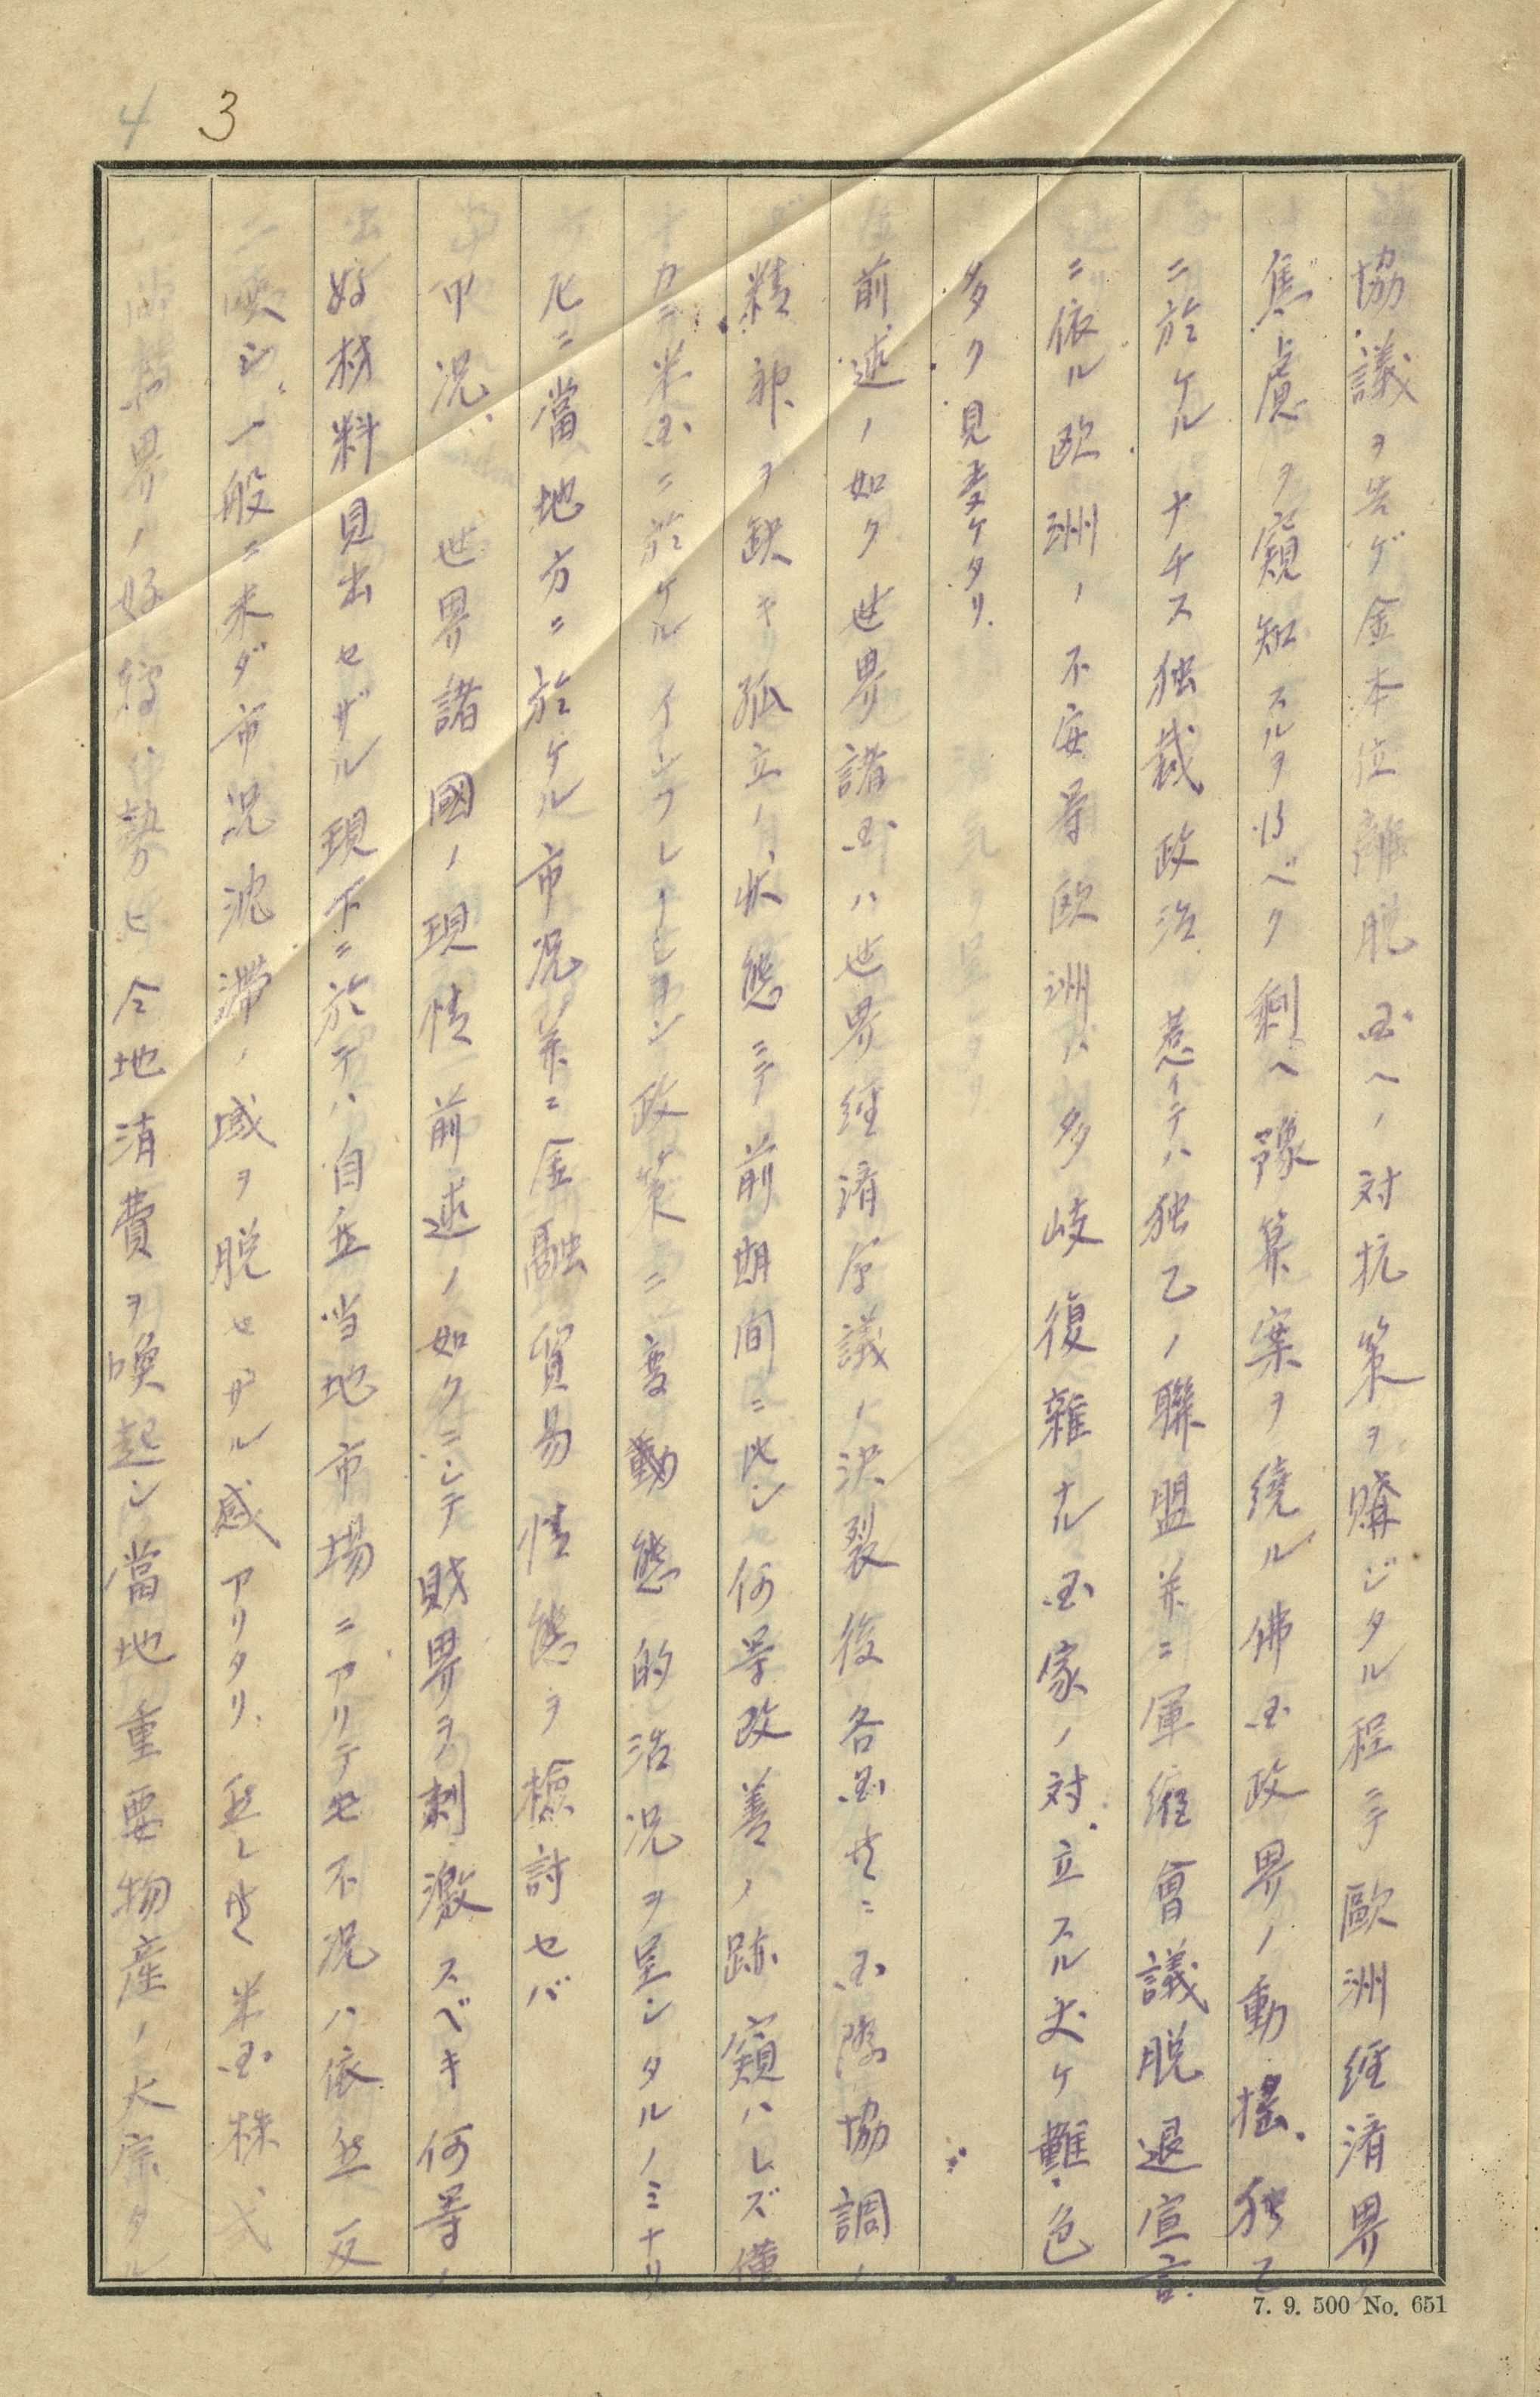 4 3
協議ヲ告ゲ金本位離脱国ヘノ対抗策ヲ購ジタル程ニテ歐洲経済界ノ
焦慮ヲ窺知スルヲ得ベク剰ヘ豫算案ヲ繞ル佛国政界ノ動揺、独乙
ニ於ケルナチス独裁政治惹イテハ独乙ノ聯盟并ニ軍縮會議脱退宣言
ニ依ル欧洲ノ不安等欧洲ハ多岐復雑ナル国家ノ対立スル丈ケ難色
多ク見受ケタリ、
前述ノ如ク世界諸国ハ世界経済会議ノ決裂後各国共ニ国際協調ノ
精神ヲ缺キ孤立ノ状態ニテ前期間ニ比シ何等改善ノ跡窺ハレズ僅
カニ米国ニ於ケルインフレーシヨン政策ニ変動態的活況ヲ呈シタルノミナリ
ニ當地方ニ於ケル市況并ニ金融貿易情態ヲ檢討セバ
甲況、世界諸國ノ現情前述ノ如クニシテ財界ヲ刺激スベキ何等ノ
好材料見出セザル現下ニ於テハ自然当地市場ニアリテモ不況ハ依然反
映シ、一般ニ未ダ市況沈滞ノ域ヲ脱セザル感アリタリ、然レ共米国株式
界ノ好轉勢ハ今地消費ヲ喚起シ當地重要物産ノ大宗タル
7. 9. 500 No. 651